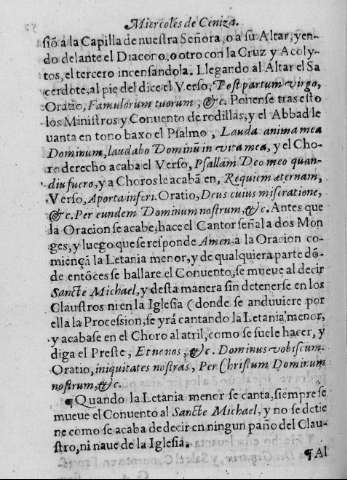 Miercoles de Ceniza.
siõ a la Capilla de nuestra Señora, o a su Altar, yen-
do delante el Diacono, o otro con la Cruz y Acoly-
tos, el tercero incensandola. Llegando al Altar el Sa
cerdote, al pie del dice el Verso, Post partum virgo,
Oratio, Famulorum tuorum, &c. Ponense tras esto
los Ministros y Convento de rodillas, y el Abbad le
uanta en tono baxo el Psalmo, Lauda anima mea
Dominum, laudabo Dominũ in vita mea, y el Cho-
ro derecho acaba el Verso, Psallam Deo meo quan-
diu fuero, y a Choros le acabã en, Requiem æternam,
Verso, A porta inferi. Oratio, Deus cuius miseratione,
&c. Per eundem Dominum nostrum, &c. Antes que
la Oracion se acabe, hace el Cantor señal a dos Mon
ges, y luego que se responde Amen a la Oracion co-
miençã la Letania menor, y de qualquiera parte dõ-
de entõces se hallare el Convento, se mueve al decir
Sancte Michael, y desta manera sin detenerse en los
Claustros ni en la Iglesia (donde se anduuiere por
ella la Procession, se yrá cantando la Letania menor,
y acabase en el Choro al atril, como se suele hacer, y
diga el Preste, Et ne nos, &c. Dominus vobiscum.
Oratio, iniquitates nostras, Per Christum Dominum
nostrum, &c.
¶ Quando la Letania menor se canta, siempre se
mueve el Convento al Sancte Michael, y no se detie
ne como se acaba de decir en ningun paño del Clau-
stro, ni naue de la Iglesia.
¶ Al